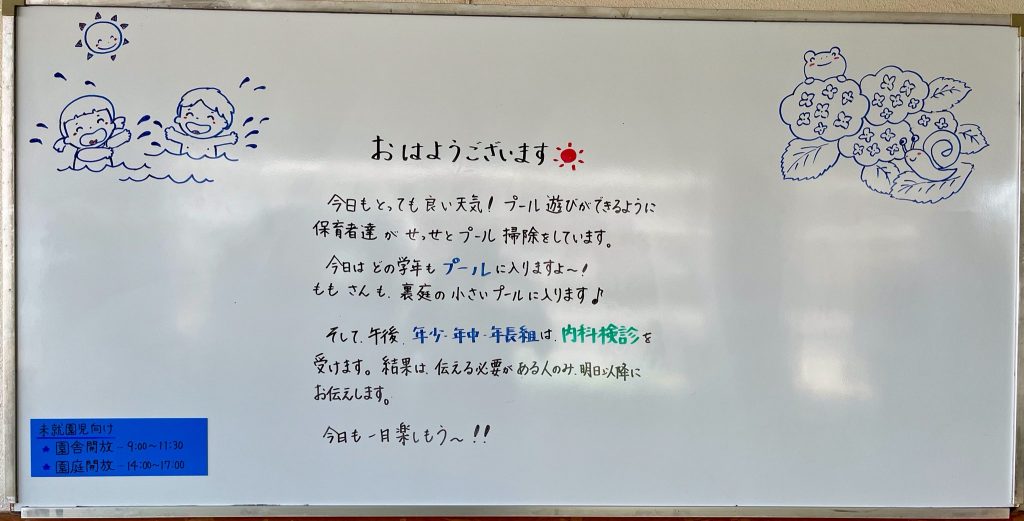 おはようございます
今日もとっても良い天気！プール遊びができるように
保育者達がせっせとプール掃除をしています。
今日はどの学年もプールに入りますよ〜！
ももさんも、裏庭の小さいプールに入ります♪
そして、午後、年少・年中・年長組は、内科検診を
受けます。結果は、伝える必要がある人のみ、明日以降に
お伝えします。
今日も一日楽しもう〜！！
未就園児向け
★園舎開放－9:00〜11:30
★園庭開放－14:00〜17:00